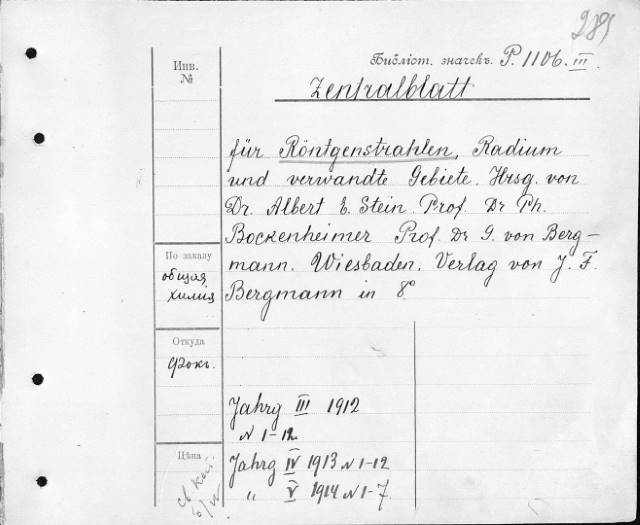 289
Библіот. значекъ. P. 1106. III.
Инв.
№
Zentralblatt
für Röntgenstrahlen, Radium
und verwandte Gebiete. Hrsg. von
Dr. Albert E. Stein. Prof. Dr Ph.
Bockenheimer Prof. Dr G. von Berg-
mann. Wiesbaden. Verlag von J. F.
Bergmann in 8°
По заказу
общая
химія
Откуда
Jahrg III 1912
N 1-12
Jahrg IV 1913 N 1-12
„ V 1914 N 1-7.
Цѣна